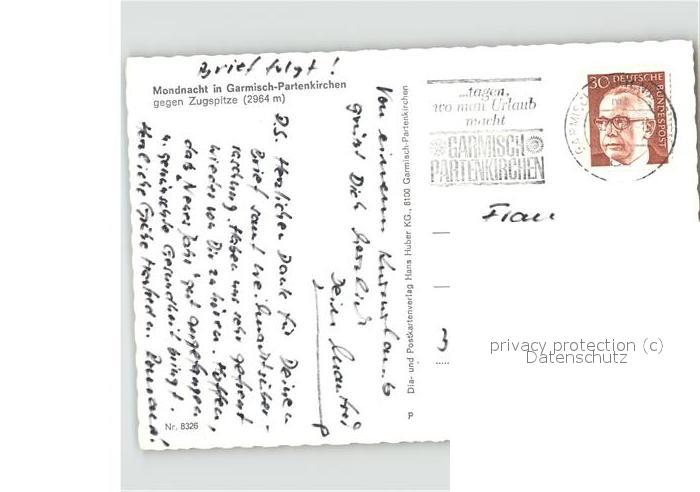 Brief folgt!
Mondnacht in Garmisch-Partenkirchen
gegen Zugspitze (2964 m)
Von einem Kurzurlaub
grüßt Dich herzlich
Dein Manfred
P.S. Herzlichen Dank für Deinen
Brief samt Weihnachtsüber-
raschung. Haben uns sehr gefreut
wieder von Dir zu hören. Hoffen,
daß Neues Jahr gut angefangen
u. gewünschte Gesundheit bringt.
Herzliche Grüße
Nr. 8326
Dia- und Postkartenverlag Hans Huber KG., 8100 Garmisch-Partenkirchen
P
...tagen,
wo man Urlaub
macht
GARMISCH
PARTENKIRCHEN
30 DEUTSCHE
BUNDESPOST
Frau
privacy protection (c)
Datenschutz